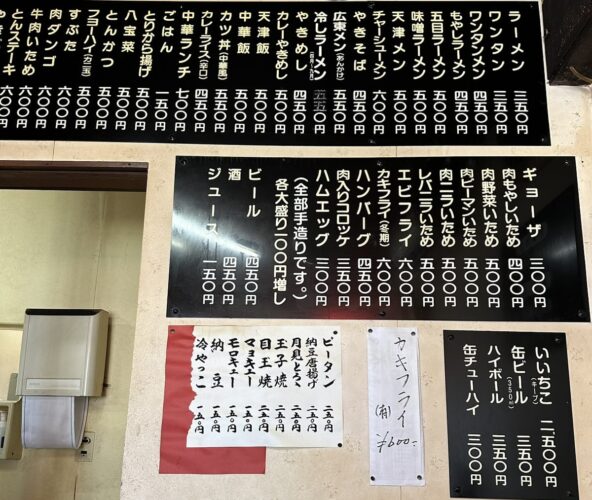 ラーメン 三五〇円
ワンタン 三五〇円
ワンタンメン 四五〇円
もやしラーメン 四五〇円
五目ラーメン 五〇〇円
味噌ラーメン 五〇〇円
天津メン 五〇〇円
チャーシューメン 六〇〇円
やきそば 四五〇円
広東メン(あんかけ) 五五〇円
冷しラーメン
やきめし 四五〇円
カレーやきめし 五〇〇円
天津飯 五〇〇円
中華飯 五〇〇円
カツ丼(中華風) 五五〇円
カレーライス(辛口) 四五〇円
中華ランチ 七〇〇円
ごはん 一五〇円
とりから揚げ 五〇〇円
八宝菜 五〇〇円
とんかつ 五〇〇円
フヨーハイ(カニ玉) 五〇〇円
すぶた 六〇〇円
肉ダンゴ 六〇〇円
牛肉いため 六〇〇円
とんステーキ 六〇〇円
ギョーザ 三〇〇円
肉もやしいため 四〇〇円
肉野菜いため 五〇〇円
肉ピーマンいため 五〇〇円
肉ニラいため 五〇〇円
レバニラいため 五〇〇円
エビフライ 六〇〇円
カキフライ(冬期) 六〇〇円
ハンバーグ 四五〇円
肉入りコロッケ 三五〇円
ハムエッグ 三〇〇円
(全部手造りです。)
各大盛り一〇〇円増し
ビール 四五〇円
酒 四五〇円
ジュース 一五〇円
ピータン 二五〇円
納豆唐揚げ 二五〇円
月見とろろ 二五〇円
玉子焼 二五〇円
目玉焼 二五〇円
マヨキュー 二五〇円
モロキュー 二五〇円
納豆 一五〇円
冷やっこ 一五〇円
カキフライ
(有)
¥600-
いいちこ(キープ) 二五〇〇円
缶ビール(350ml) 三〇〇円
ハイボール 三五〇円
缶チューハイ 三〇〇円